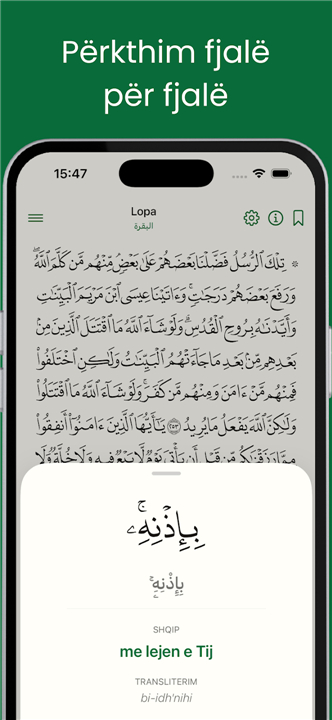 Përkthim fjalë
për fjalë
15:47
Lopa
البقرة
۞ تِلْكَ ٱلرُّسُلُ فَضَّلْنَا بَعْضَهُمْ عَلَىٰ بَعْضٍ مِّنْهُم مَّن كَلَّمَ ٱللَّهُ ۖ
وَرَفَعَ بَعْضَهُمْ دَرَجَٰتٍ ۚ وَءَاتَيْنَا عِيسَى ٱبْنَ مَرْيَمَ ٱلْبَيِّنَٰتِ
وَأَيَّدْنَٰهُ بِرُوحِ ٱلْقُدُسِ ۗ وَلَوْ شَآءَ ٱللَّهُ مَا ٱقْتَتَلَ ٱلَّذِينَ مِنۢ
بَعْدِهِم مِّنۢ بَعْدِ مَا جَآءَتْهُمُ ٱلْبَيِّنَٰتُ وَلَٰكِنِ ٱخْتَلَفُوا۟
فَمِنْهُم مَّنْ ءَامَنَ وَمِنْهُم مَّن كَفَرَ ۚ وَلَوْ شَآءَ ٱللَّهُ مَا ٱقْتَتَلُوا۟
وَلَٰكِنَّ ٱللَّهَ يَفْعَلُ مَا يُرِيدُ ٢٥٣ يَٰٓأَيُّهَا ٱلَّذِينَ ءَامَنُوٓا۟ أَنفِقُوا۟
مِمَّا رَزَقْنَٰكُم مِّن قَبْلِ أَن يَأْتِىَ يَوْمٌ لَّا بَيْعٌ فِيهِ وَلَا خُلَّةٌ وَلَا
بِإِذْنِهِۦ ۚ
بِإِذْنِهِۦ ۚ
SHQIP
me lejen e Tij
TRANSLITERIM
bi-idh'nihi